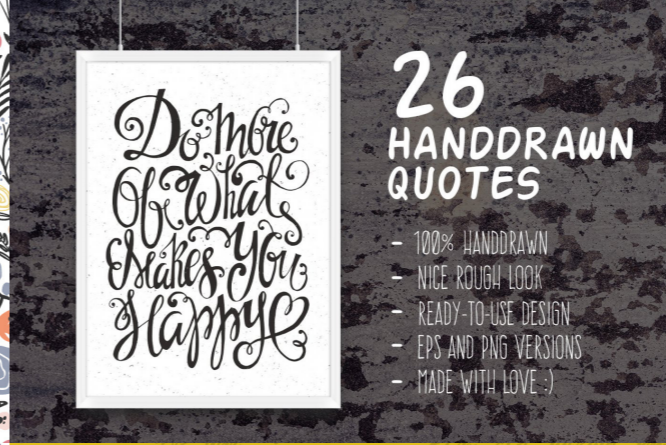 Do More
Of What
Makes You
Happy
26
HANDDRAWN
QUOTES
- 100% HANDDRAWN
- NICE ROUGH LOOK
- READY-TO-USE DESIGN
- EPS AND PNG VERSIONS
- MADE WITH LOVE :)